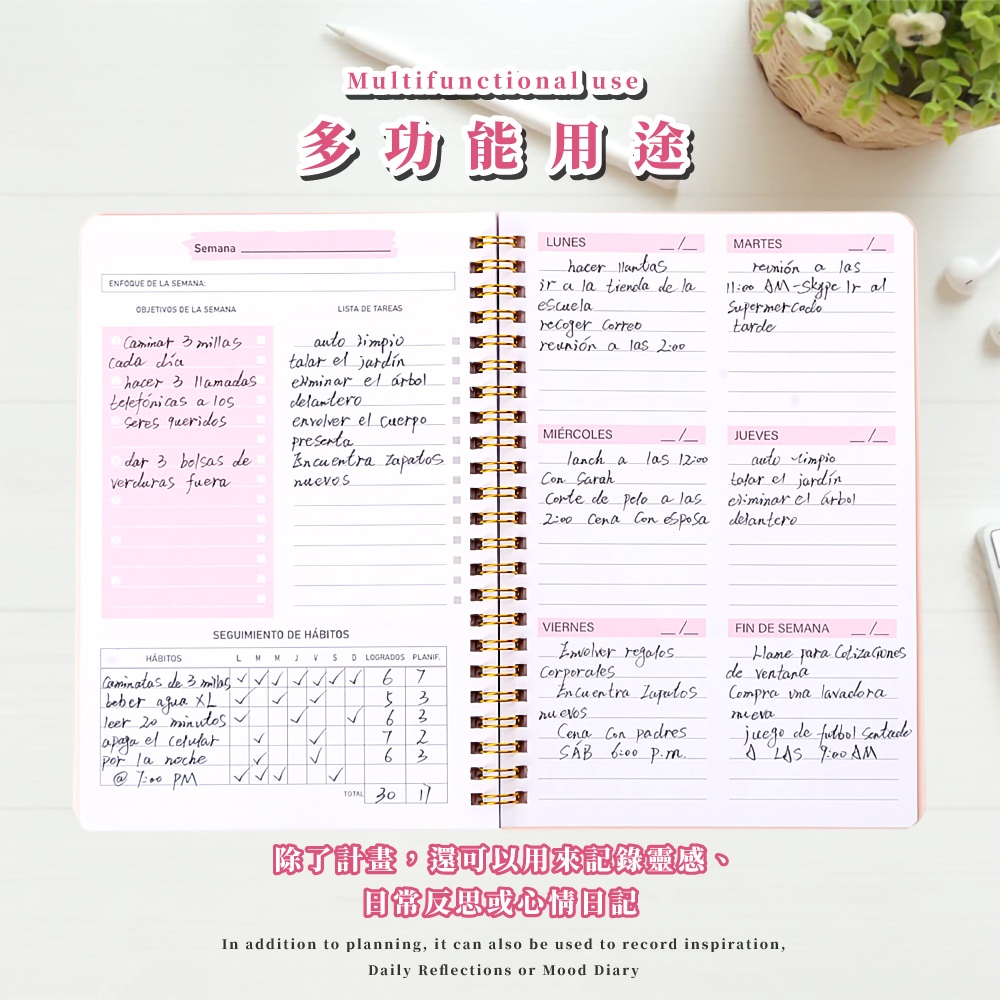 Multifunctional use
多功能用途
Semana
ENFOQUE DE LA SEMANA:
OBJETIVOS DE LA SEMANA
caminar 3 millas
cada día
hacer 3 llamadas
telefónicas a los
seres queridos
dar 3 bolsas de
verduras fuera
LISTA DE TAREAS
auto limpio
talar el jardín
eliminar el árbol
delantero
envolver el cuerpo
presenta
Encuentra zapatos
nuevos
SEGUIMIENTO DE HÁBITOS
HÁBITOS L M M J V S D LOGRADOS PLANIF.
Caminatas de 3 millas ✓ ✓ ✓ ✓ ✓ ✓ ✓ 6 7
beber agua XL ✓ ✓ ✓ 5 3
leer 20 minutos ✓ ✓ ✓ 6 3
apaga el celular ✓ ✓ 7 2
por la noche ✓ ✓ 6 3
@ 7:00 PM ✓ ✓ ✓ ✓
TOTAL 30 17
LUNES __/__
hacer llantas
ir a la tienda de la
escuela
recoger correo
reunión a las 2:00
MARTES __/__
reunión a las
11:00 AM-Skype Ir al
supermercado
tarde
MIÉRCOLES __/__
lanch a las 12:00
Con Sarah
Corte de pelo a las
2:00 Cena Con esposa
JUEVES __/__
auto limpio
talar el jardín
eliminar el árbol
delantero
VIERNES __/__
Envolver regalos
corporales
Encuentra Zapatos
nuevos
Cena Con padres
SÁB 6:00 p.m.
FIN DE SEMANA __/__
Llame para Cotizaciones
de ventana
Compra una lavadora
nueva
juego de futbol Sentado
A LAS 9:00 AM
除了計畫，還可以用來記錄靈感、
日常反思或心情日記
In addition to planning, it can also be used to record inspiration,
Daily Reflections or Mood Diary